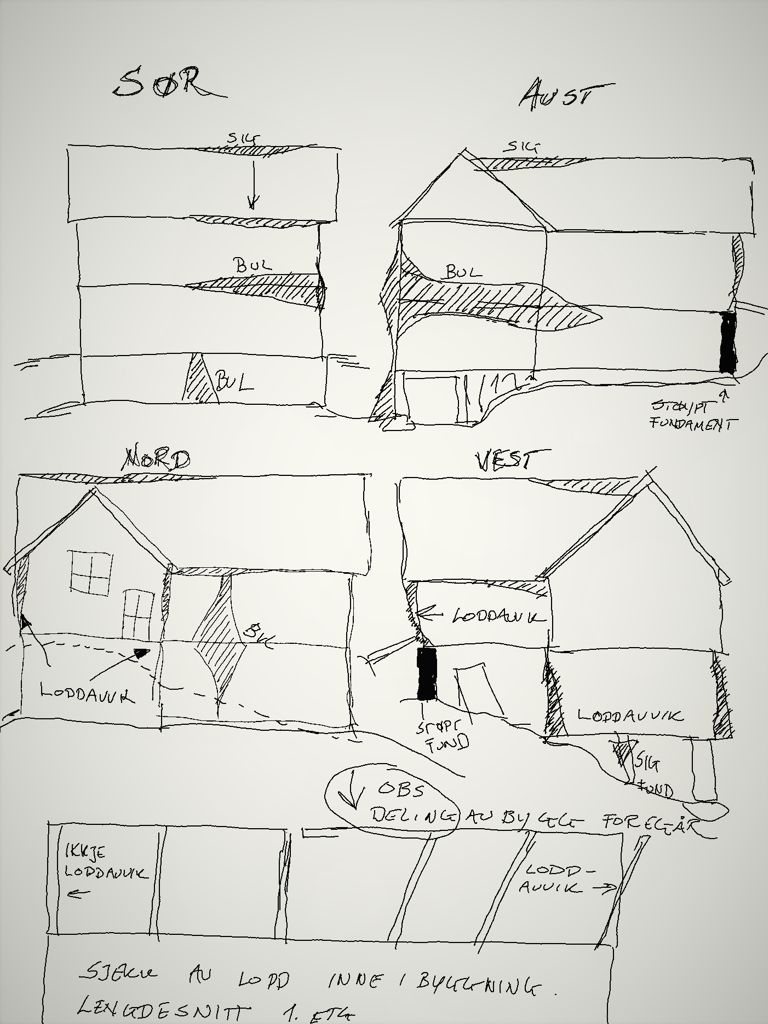 SØR
AUST
SIG
SIG
BUL
BUL
BUL
STØYPT
FUNDAMENT
NORD
VEST
BUL
LODDAVVIK
LODDAVVIK
LODDAVVIK
STØPT
FUND
SIG
FUND
OBS
DELING AV BYGGE FOREGÅR
IKKJE
LODDAVVIK
LODD-
AVVIK
SJEKK AV LODD INNE I BYGGNING.
LENGDESNITT 1. ETG